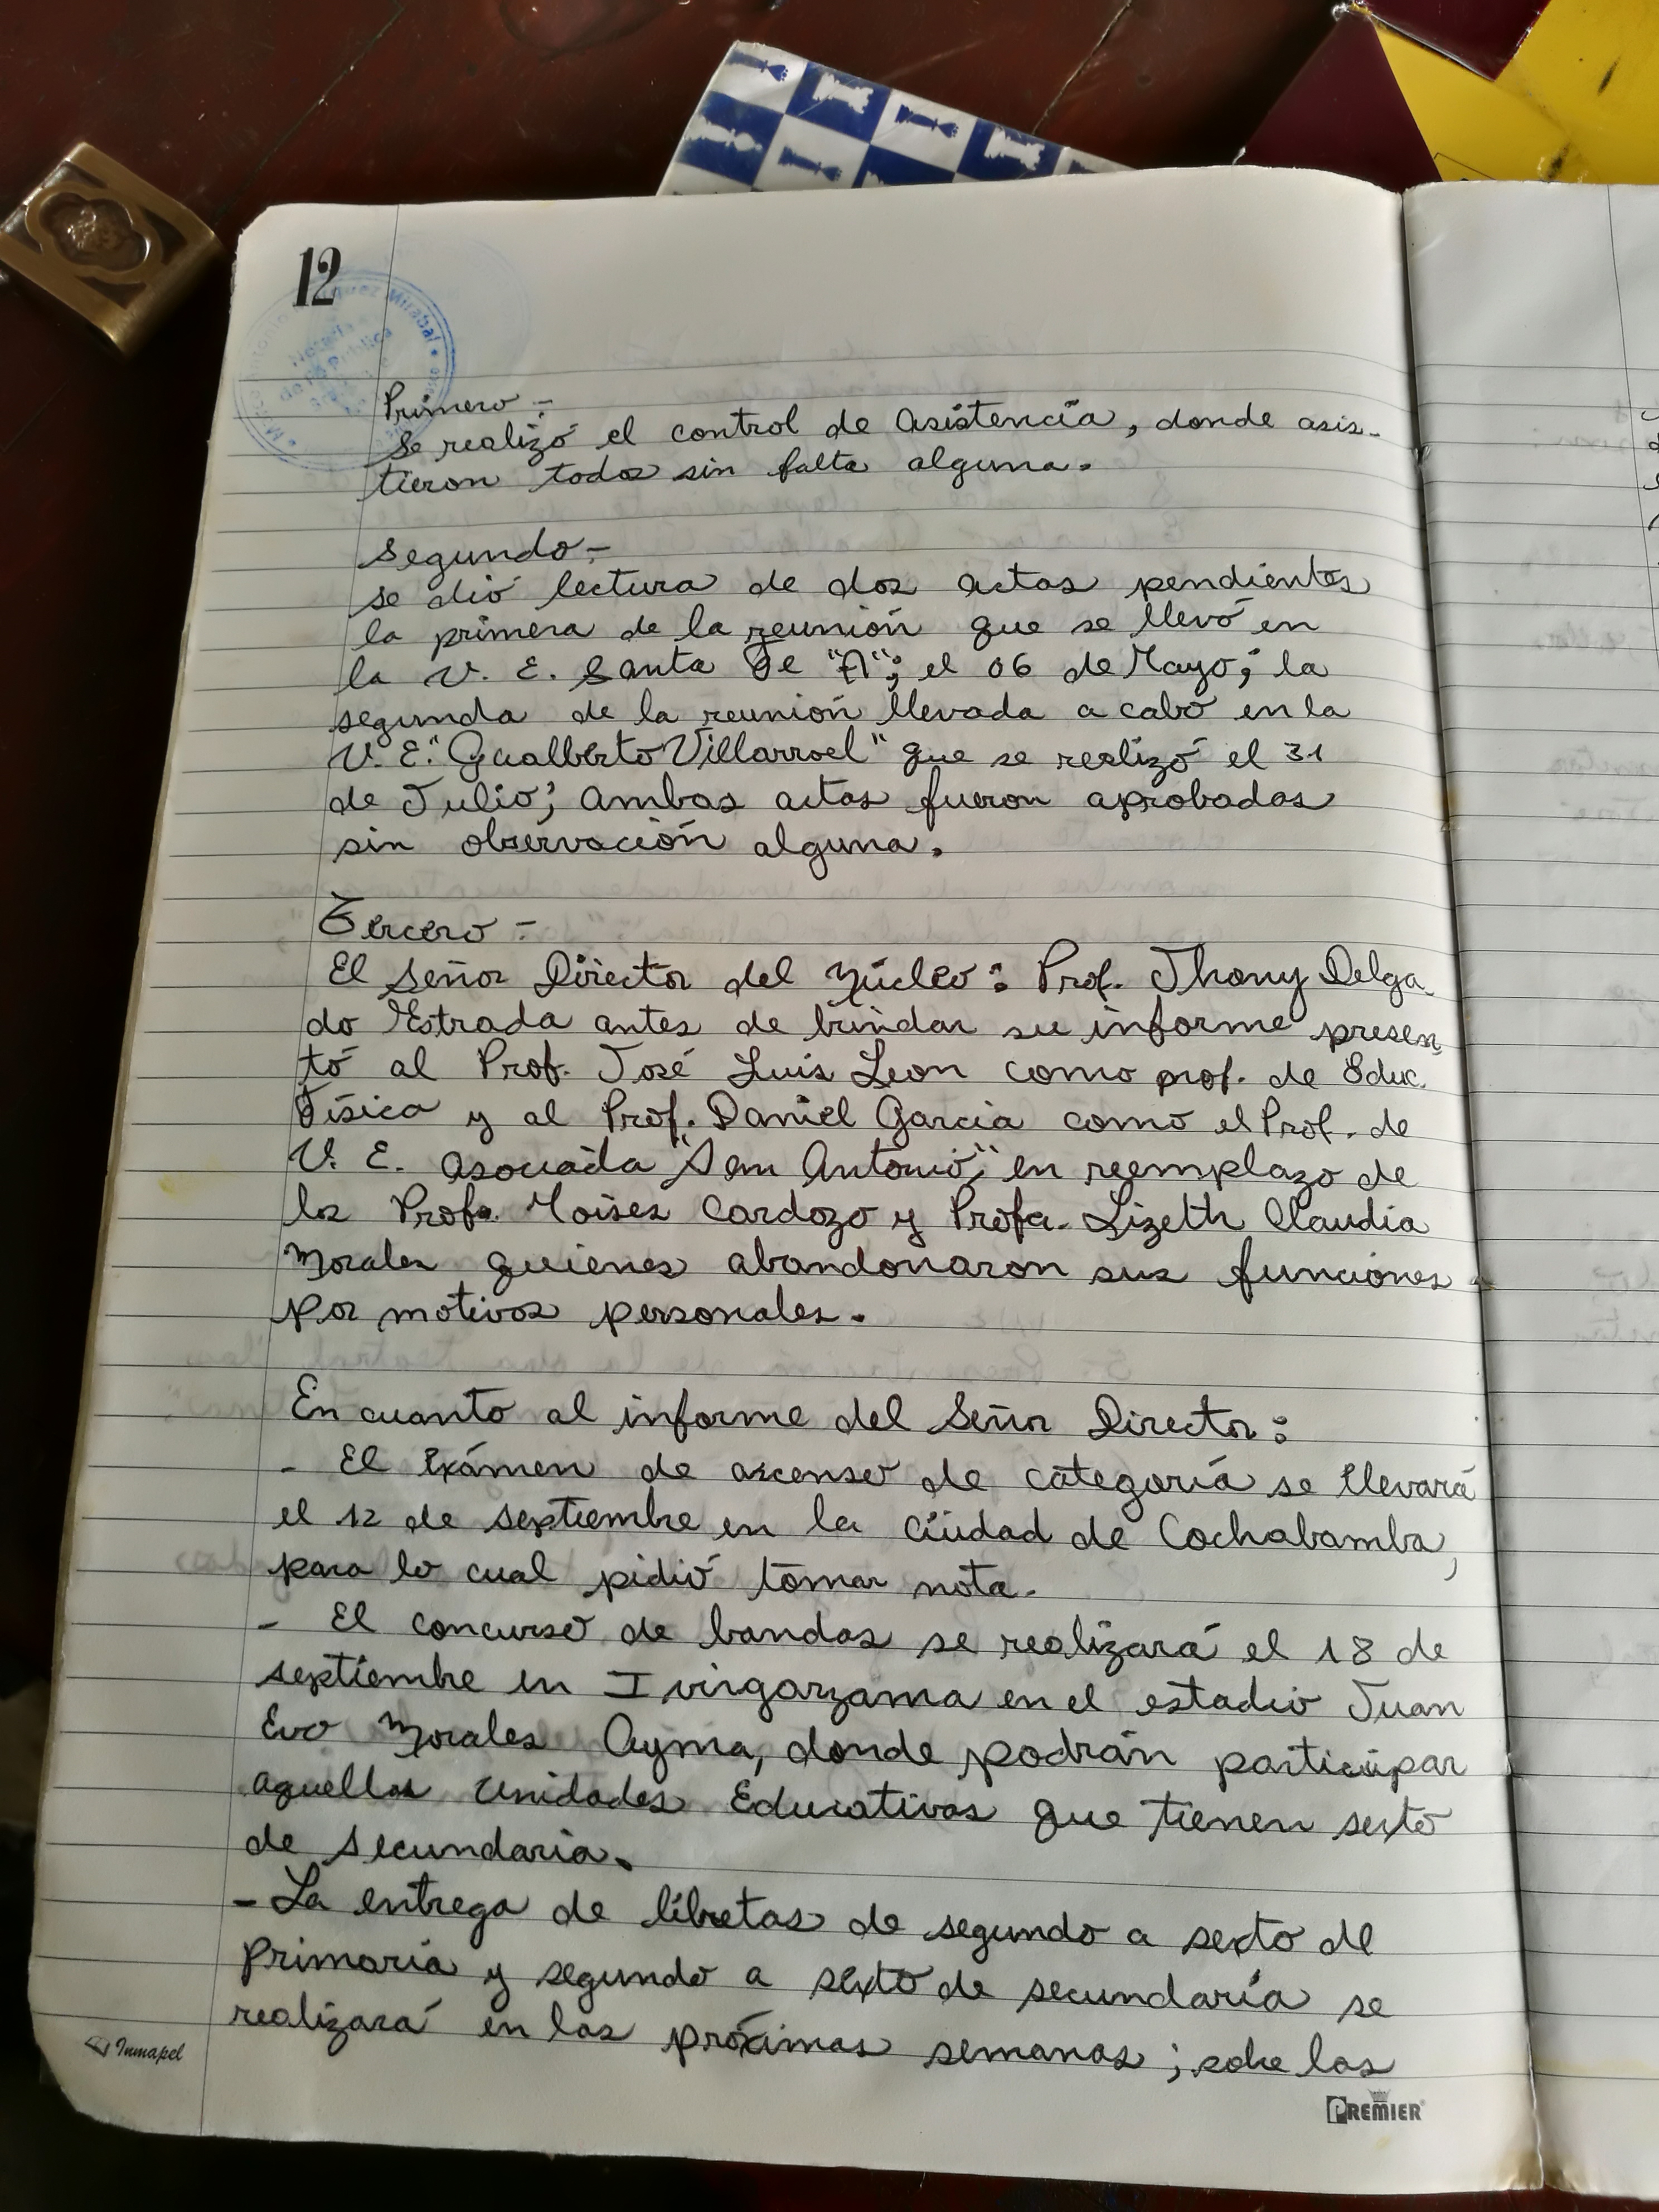 12
Mirabal
Primero -
Se realizó el control de Asistencia, donde asis-
tieron todos sin falta alguna.
Segundo -
se dió lectura de dos actas pendientes
la primera de la reunión que se llevó en
la U. E. Santa Fe "A"; el 06 de Mayo; la
segunda de la reunión llevada a cabo en la
U. E. "Gualberto Villarroel" que se realizó el 31
de Julio; ambas actas fueron aprobadas
sin observación alguna.
Tercero -
El Señor Director del Núcleo: Prof. Jhony Delga-
do Estrada antes de brindar su informe presen-
tó al Prof. José Luis Leon como prof. de Educ.
Física y al Prof. Daniel Garcia como el Prof. de
U. E. asociada "San Antonio", en reemplazo de
los Profs. Moises Cardozo y Profa. Lizeth Claudia
Morales quienes abandonaron sus funciones
por motivos personales.
En cuanto al informe del Señor Director:
- El Exámen de ascenso de categoría se llevará
el 12 de septiembre en la ciudad de Cochabamba,
para lo cual pidió tomar nota.
- El concurso de bandas se realizará el 18 de
septiembre en Ivirgarzama en el estadio Juan
Evo Morales Ayma, donde podrán participar
aquellas Unidades Educativas que tienen sexto
de secundaria.
- La entrega de libretas de segundo a sexto de
primaria y segundo a sexto de secundaria se
realizará en las próximas semanas; sobre las
Inmapel
PREMIER